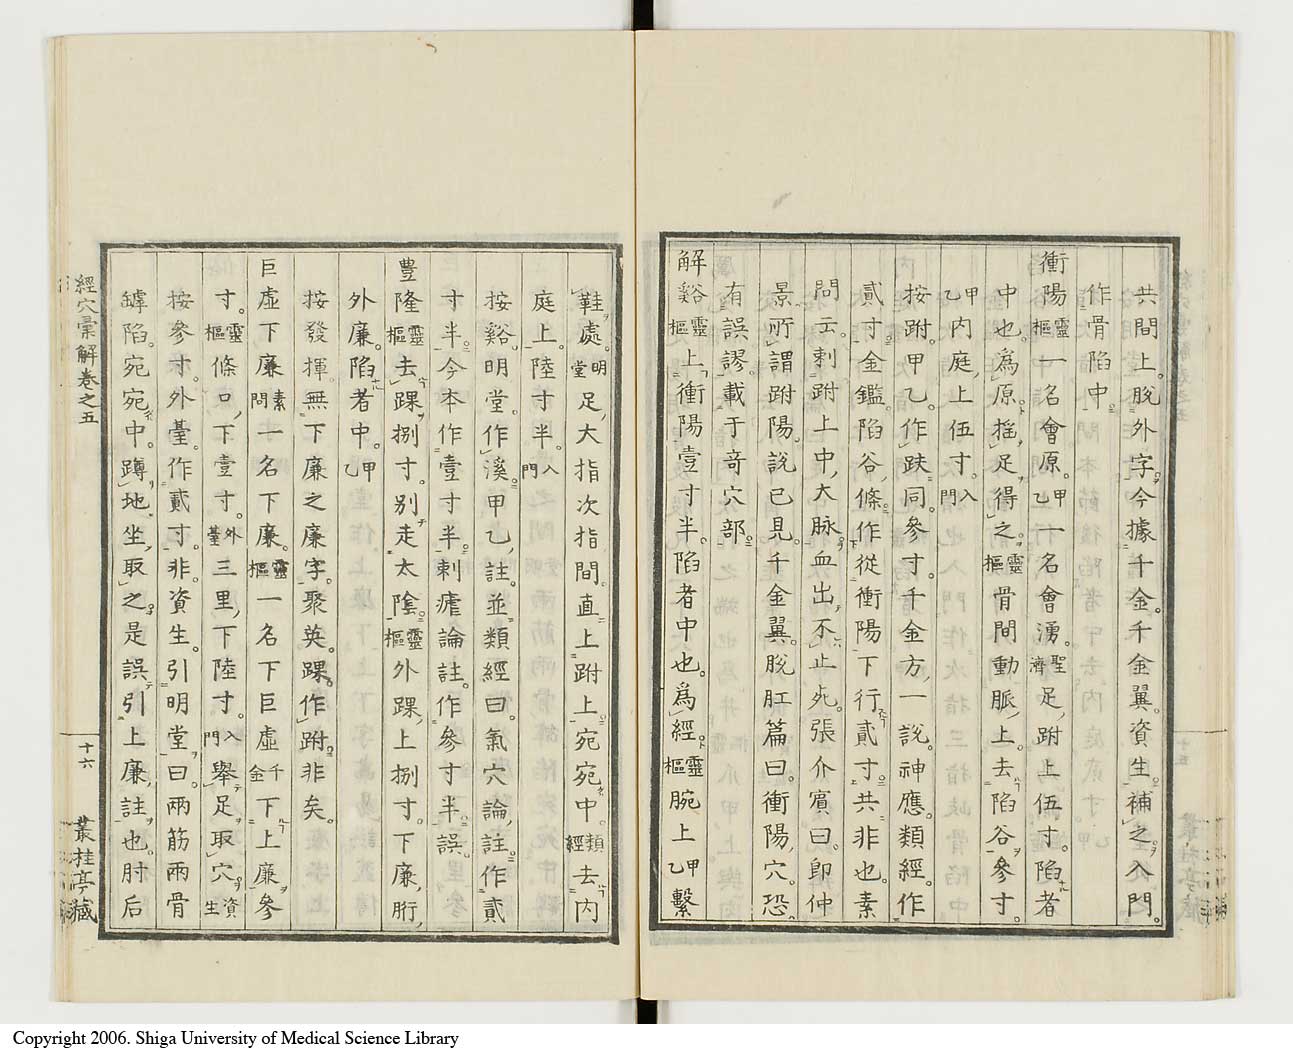 共間上。脫外字。今據千金。千金翼。資生補之。入門。
作骨陷中。
衝陽靈樞一名會原。甲乙一名會湧。聖濟足跗上伍寸。陷者
中也。為原。搖足得之。靈樞骨間動脈上。去陷谷參寸。
甲乙內庭上伍寸。入門
按跗。甲乙。作趺同。參寸。千金方。一說。神應。類經。作
貳寸。金鑑。陷谷。條。作從衝陽下行貳寸。共非也。素
問云。刺跗上中大脈。血出不止死。張介賓曰。即仲
景所謂跗陽。說已見。千金翼。脫肛篇曰。衝陽穴。恐
有誤謬。載于奇穴部。
解谿靈樞上衝陽壹寸半。陷者中也。為經。靈樞腕上甲乙繫
鞋處。明堂足大指次指間。直上跗上宛宛中。類經去內
庭上。陸寸半。入門
按谿。明堂。作溪。甲乙。註。並類經曰。氣穴論。註。作貳
寸半。今本作壹寸半。刺瘧論註。作參寸半。誤。
豐隆靈樞去踝捌寸。別走太陰。靈樞外踝上捌寸。下廉胻
外廉。陷者中。甲乙
按發揮。無下廉之廉字。聚英。踝作跗。非矣。
巨虛下廉素問一名下廉。靈樞一名下巨虛千金下上廉參
寸。靈樞條口下壹寸。外臺三里下陸寸。入門舉足取穴。資生
按參寸。外臺。作貳寸。非。資生。引明堂曰。兩筋兩骨
罅陷。宛宛中。蹲地坐取之。是誤引上廉註也。肘后
經穴彙解卷之五
十六
叢桂亭藏
Copyright 2006. Shiga University of Medical Science Library